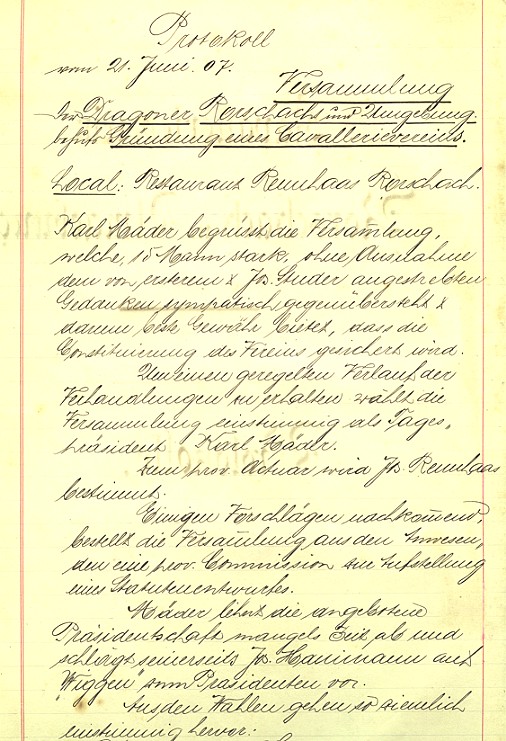 Protokoll
vom 21. Juni. 07.
Versammlung
der Dragoner Rorschachs und Umgebung.
behufs Gründung eines Cavallerievereins.
Local: Restaurant Rennhaas Rorschach.
Karl Mäder begrüsst die Versamlung,
welche, 15 Mann stark, ohne Ausnahme
dem von ersterem & Js. Studer angestrebten
Gedanken sympatisch gegenübersteht &
darum beste Gewähr bietet, dass die
Constituierung des Vereins gesichert wird.
Um einen geregelten Verlauf der
Verhandlungen zu erhalten wählt die
Versammlung einstimmig als Tages-
präsident Karl Mäder.
Zum prov. Actuar wird Js. Rennhaas
bestimmt.
Einigen Vorschlägen nachkomend,
bestellt die Versamlung aus den Anwesen-
den eine prov. Commission zur Aufstellung
eines Statutenentwurfes.
Mäder lehnt die angebotene
Präsidentschaft mangels Zeit ab und
schlägt seinerseits Js. Hanimann auf
"Wiggen" zum Präsidenten vor.
Aus den Wahlen gehen so ziemlich
einstimmig hervor: